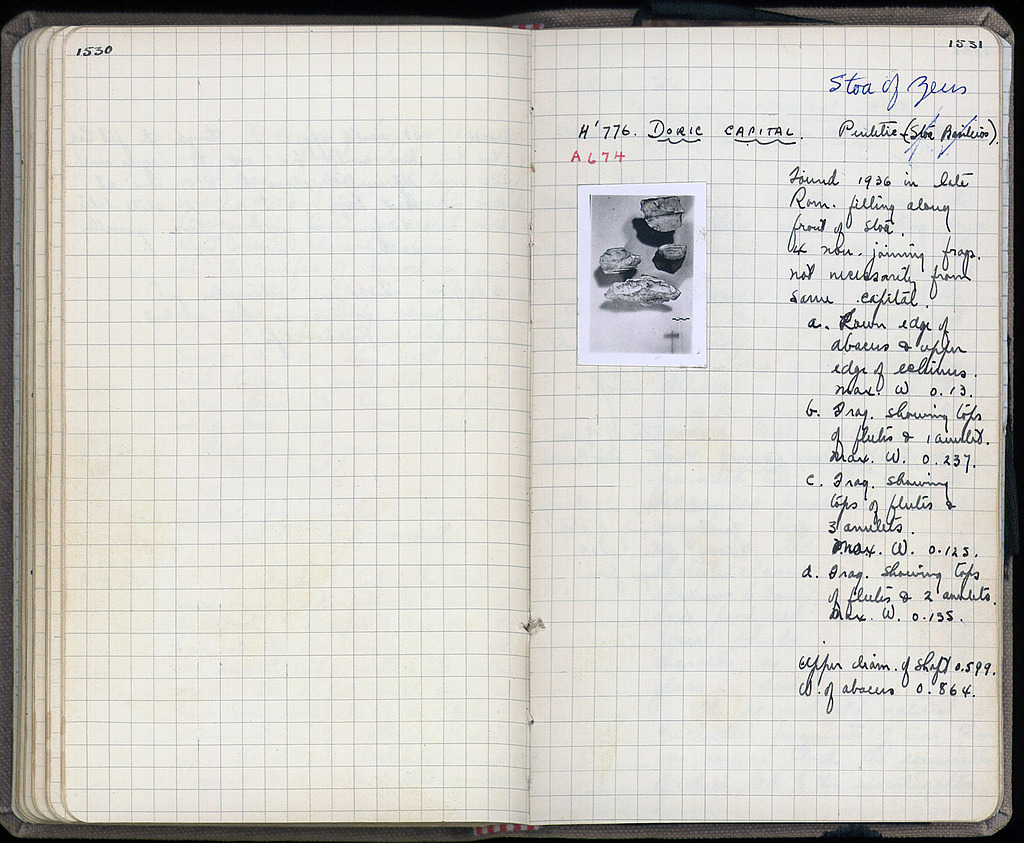 1530
1531
Stoa of Zeus
H' 776. DORIC CAPITAL. Pentelic (Stoa Basileios).
A 674
Found 1936 in late
Rom. filling along
front of stoa.
4 non-joining frags.
not necessarily from
same capital.
a. edge of
abacus & upper
edge of echinus.
max. W 0.13.
b. Frag. showing tops
of flutes & 1 annulet.
Max. W. 0.237.
c. Frag. showing
tops of flutes &
3 annulets.
Max. W. 0.125.
d. Frag. showing tops
of flutes & 2 annulets.
Max. W. 0.135.
Upper diam. of shaft 0.599.
W. of abacus 0.864.